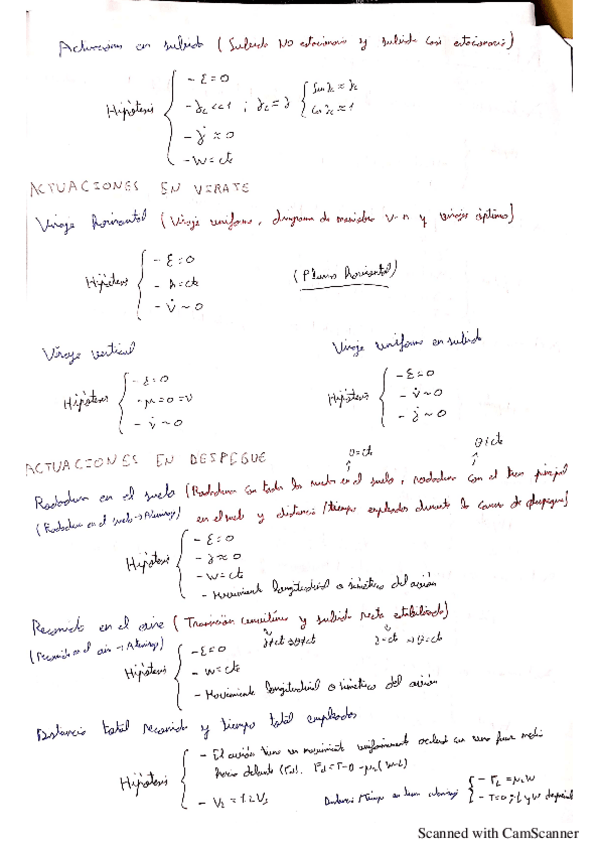 Actuaciones en subida (Subida NO estacionaria y subida casi estacionaria)
Hipótesis { - ε = 0
- γc << 1 ; γc = γ { Sen γc ≈ γc
Cos γc ≈ 1
- γ̇ ≈ 0
- W = cte
ACTUACIONES EN VIRAJE
Viraje horizontal (Viraje uniforme, diagrama de maniobra V-n y virajes óptimos)
Hipótesis { - ε = 0
- h = cte
- V̇ ~ 0
(Plano horizontal)
Viraje vertical
Hipótesis { - ε = 0
- μ = 0 = ν
- V̇ ~ 0
Viraje uniforme en subida
Hipótesis { - ε = 0
- V̇ ~ 0
- γ̇ ~ 0
ACTUACIONES EN DESPEGUE
θ = cte
θ ≠ cte
Rodadura en el suelo (Rodadura con todas las ruedas en el suelo, rodadura con el tren principal
(Rodadura en el suelo → Aterrizaje) en el suelo y distancia/tiempo empleados durante la carrera de despegue)
Hipótesis { - ε = 0
- γ ≈ 0
- W = cte
- Movimiento longitudinal o simétrico del avión
Recorrido en el aire (Transición curvilínea y subida recta estabilizada)
(Recorrido en el aire → Aterrizaje)
γ ≠ cte θ ≠ cte
γ = cte θ = cte
Hipótesis { - ε = 0
- W = cte
- Movimiento longitudinal o simétrico del avión
Distancia total recorrida y tiempo total empleados
Hipótesis { - El avión tiene un movimiento uniformemente acelerado con una fuerza media
hacia delante (Fd). Fd = T - D - μr (W-L)
- V2 = 1.2 Vs
Distancia/tiempo en
{ - FL = μr W
- T = 0 ;
Scanned with CamScanner